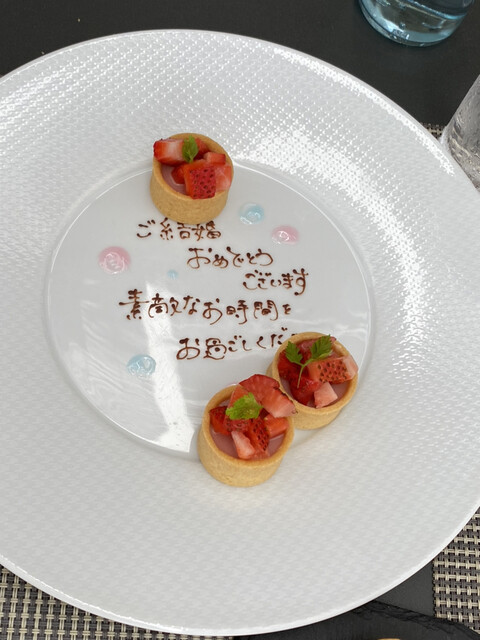 ご結婚
おめでとう
ございます
素敵なお時間を
お過ごしくだ